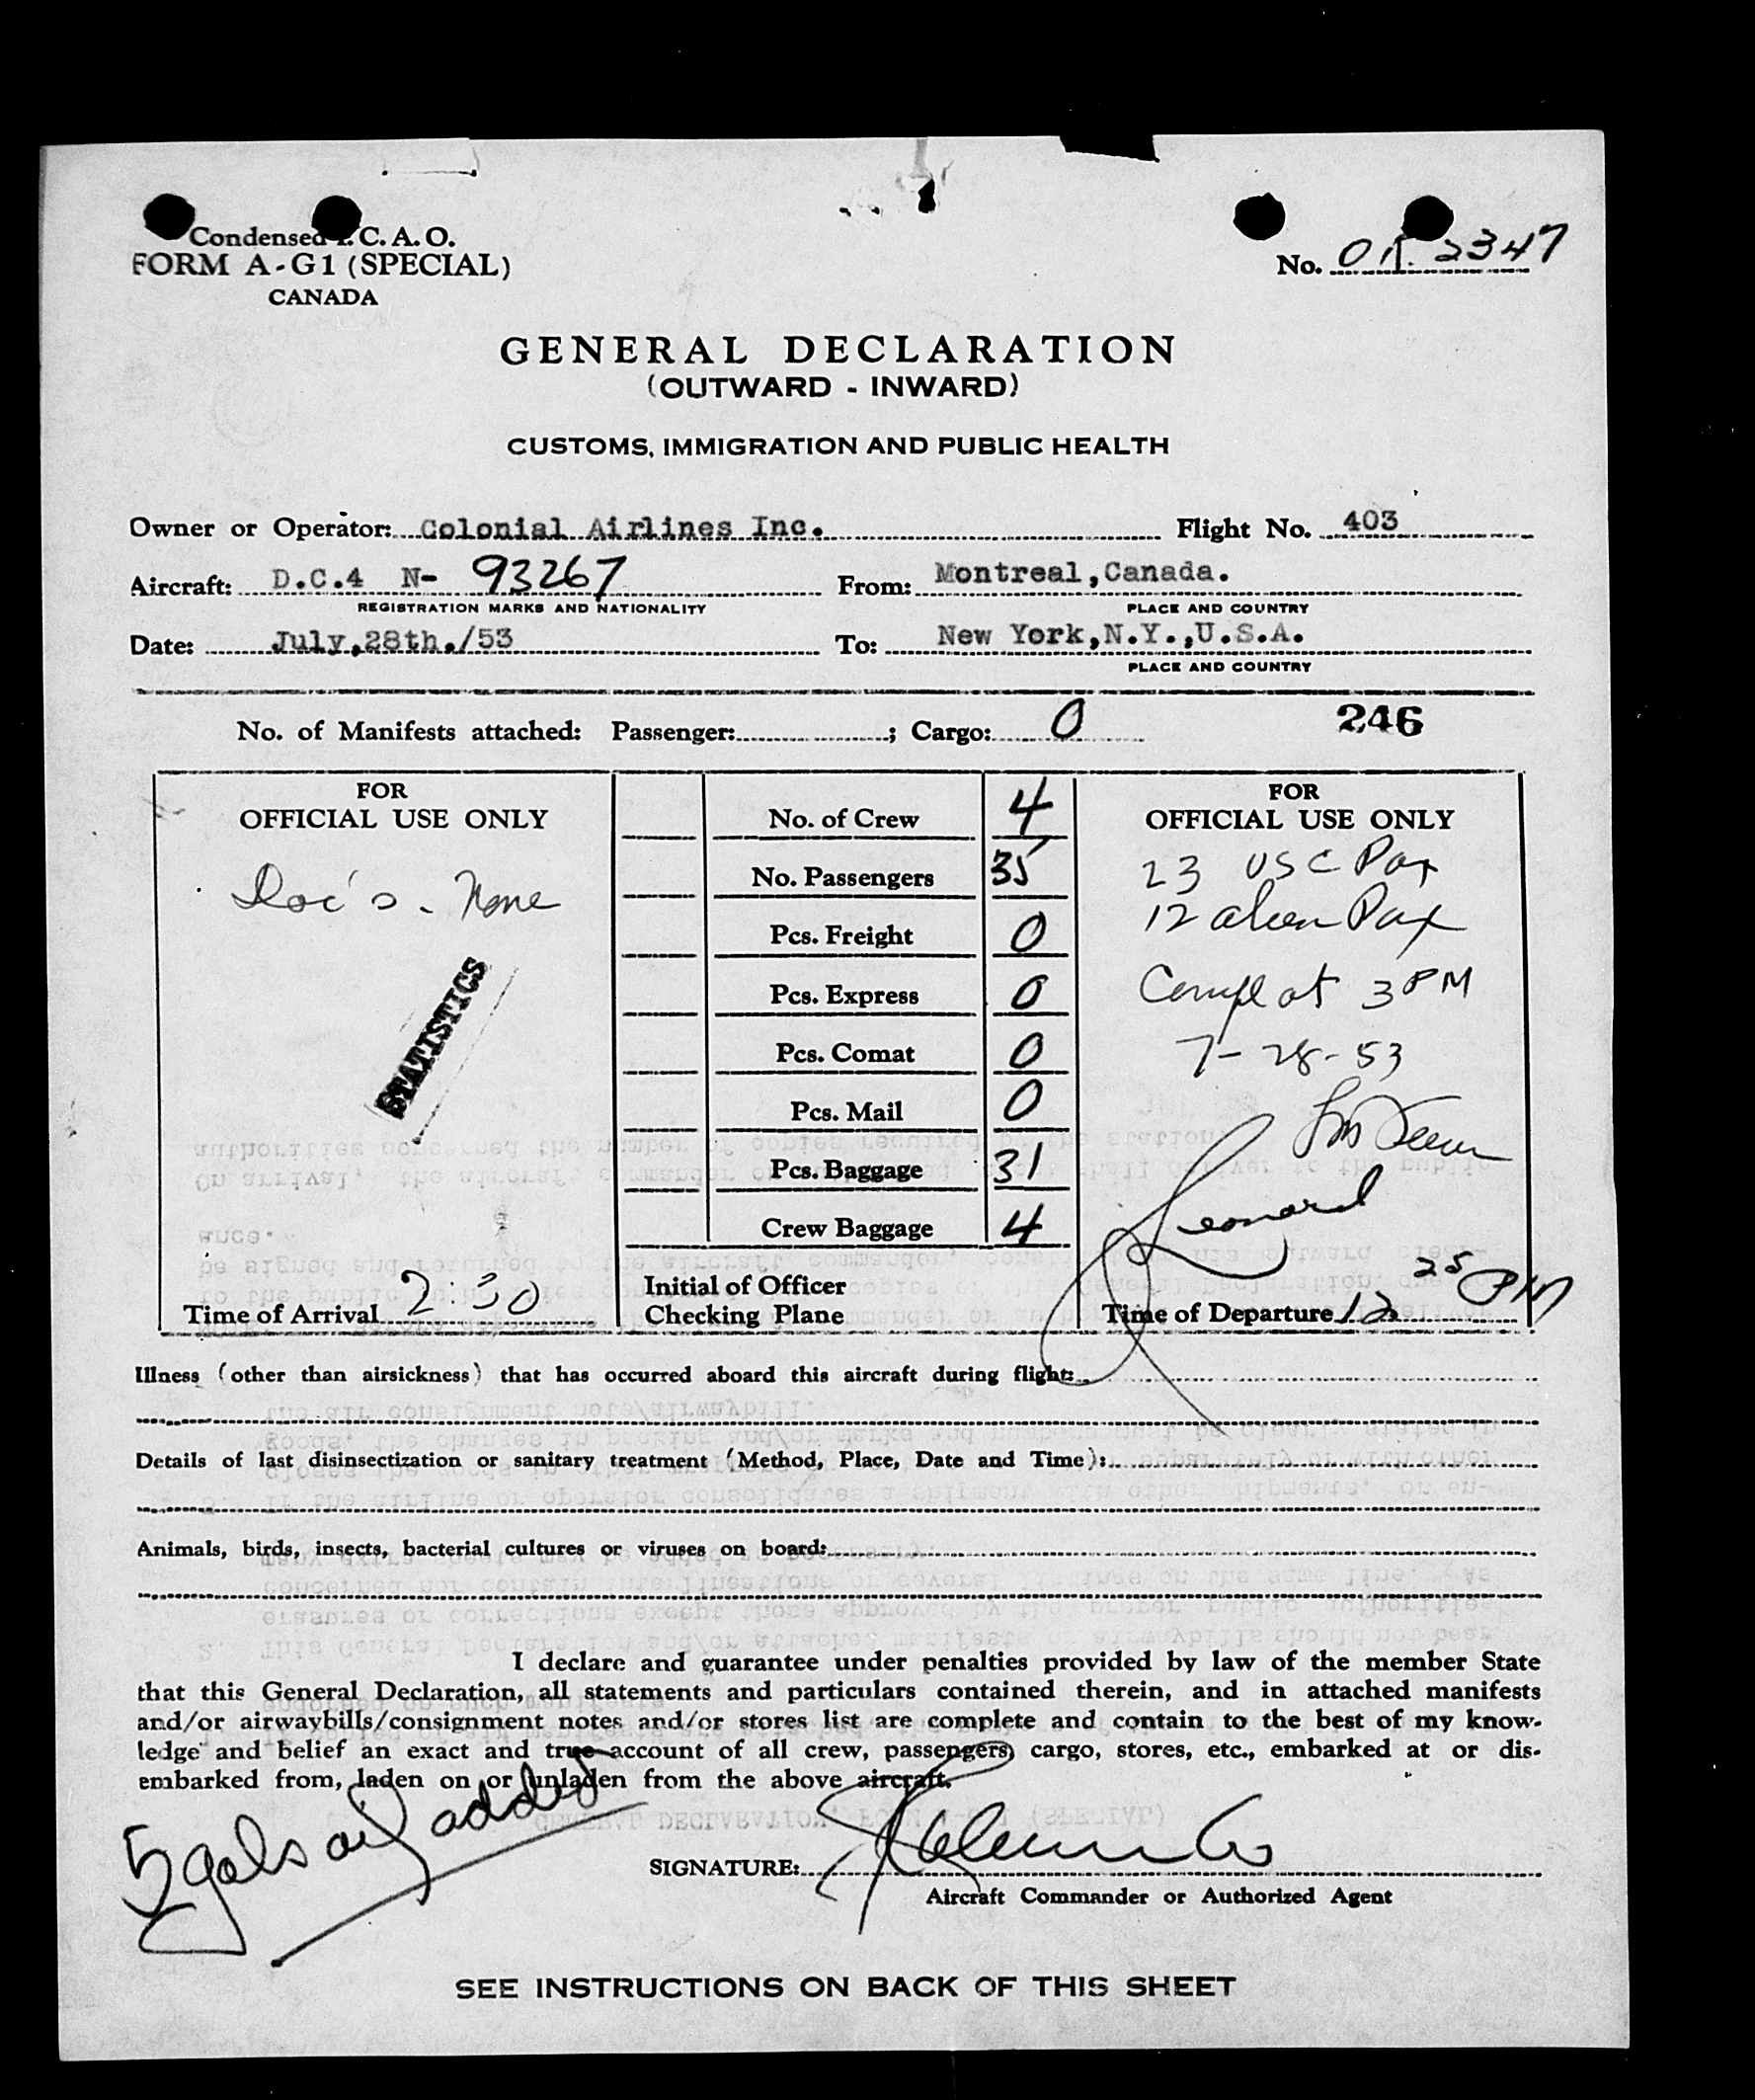 Condensed I. C. A. O.
FORM A-G1 (SPECIAL)
CANADA
No. 2347
GENERAL DECLARATION
(OUTWARD - INWARD)
CUSTOMS, IMMIGRATION AND PUBLIC HEALTH
Owner or Operator: Colonial Airlines Inc. Flight No. 403
Aircraft: D.C.4 N- 93267 From: Montreal, Canada.
REGISTRATION MARKS AND NATIONALITY PLACE AND COUNTRY
Date: July,28th./53 To: New York,N.Y.,U.S.A.
PLACE AND COUNTRY
No. of Manifests attached: Passenger: ; Cargo: 0 246
FOR
OFFICIAL USE ONLY
Doc's. None
STATISTICS
Time of Arrival 2:30
No. of Crew 4
No. Passengers 35
Pcs. Freight 0
Pcs. Express 0
Pcs. Comat 0
Pcs. Mail 0
Pcs. Baggage 31
Crew Baggage 4
Initial of Officer
Checking Plane
FOR
OFFICIAL USE ONLY
23 USC Pax
12 alien Pax
Compl at 3 PM
7-28-53
Leonard
Time of Departure 12 25 PM
Illness (other than airsickness) that has occurred aboard this aircraft during flight:
Details of last disinsectization or sanitary treatment (Method, Place, Date and Time):
Animals, birds, insects, bacterial cultures or viruses on board:
I declare and guarantee under penalties provided by law of the member State
that this General Declaration, all statements and particulars contained therein, and in attached manifests
and/or airwaybills/consignment notes and/or stores list are complete and contain to the best of my know-
ledge and belief an exact and true account of all crew, passengers, cargo, stores, etc., embarked at or dis-
embarked from, laden on or unladen from the above aircraft.
5 gals oil added
SIGNATURE:
Aircraft Commander or Authorized Agent
SEE INSTRUCTIONS ON BACK OF THIS SHEET